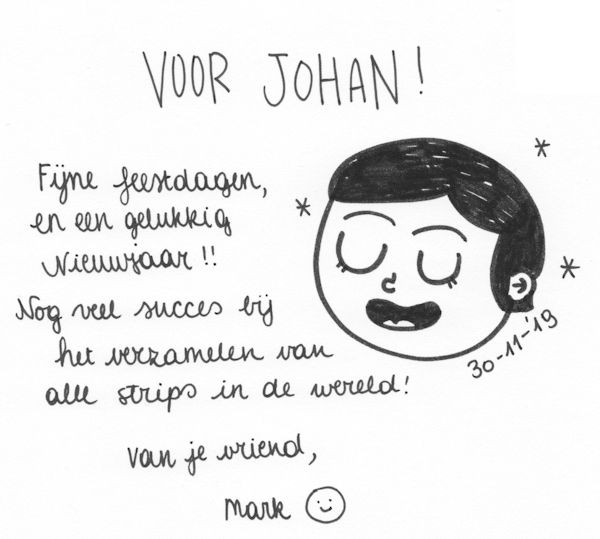 VOOR JOHAN!
Fijne feestdagen,
en een gelukkig
Nieuwjaar!!
30-11-'19
Nog veel succes bij
het verzamelen van
alle strips in de wereld!
Van je vriend,
Mark